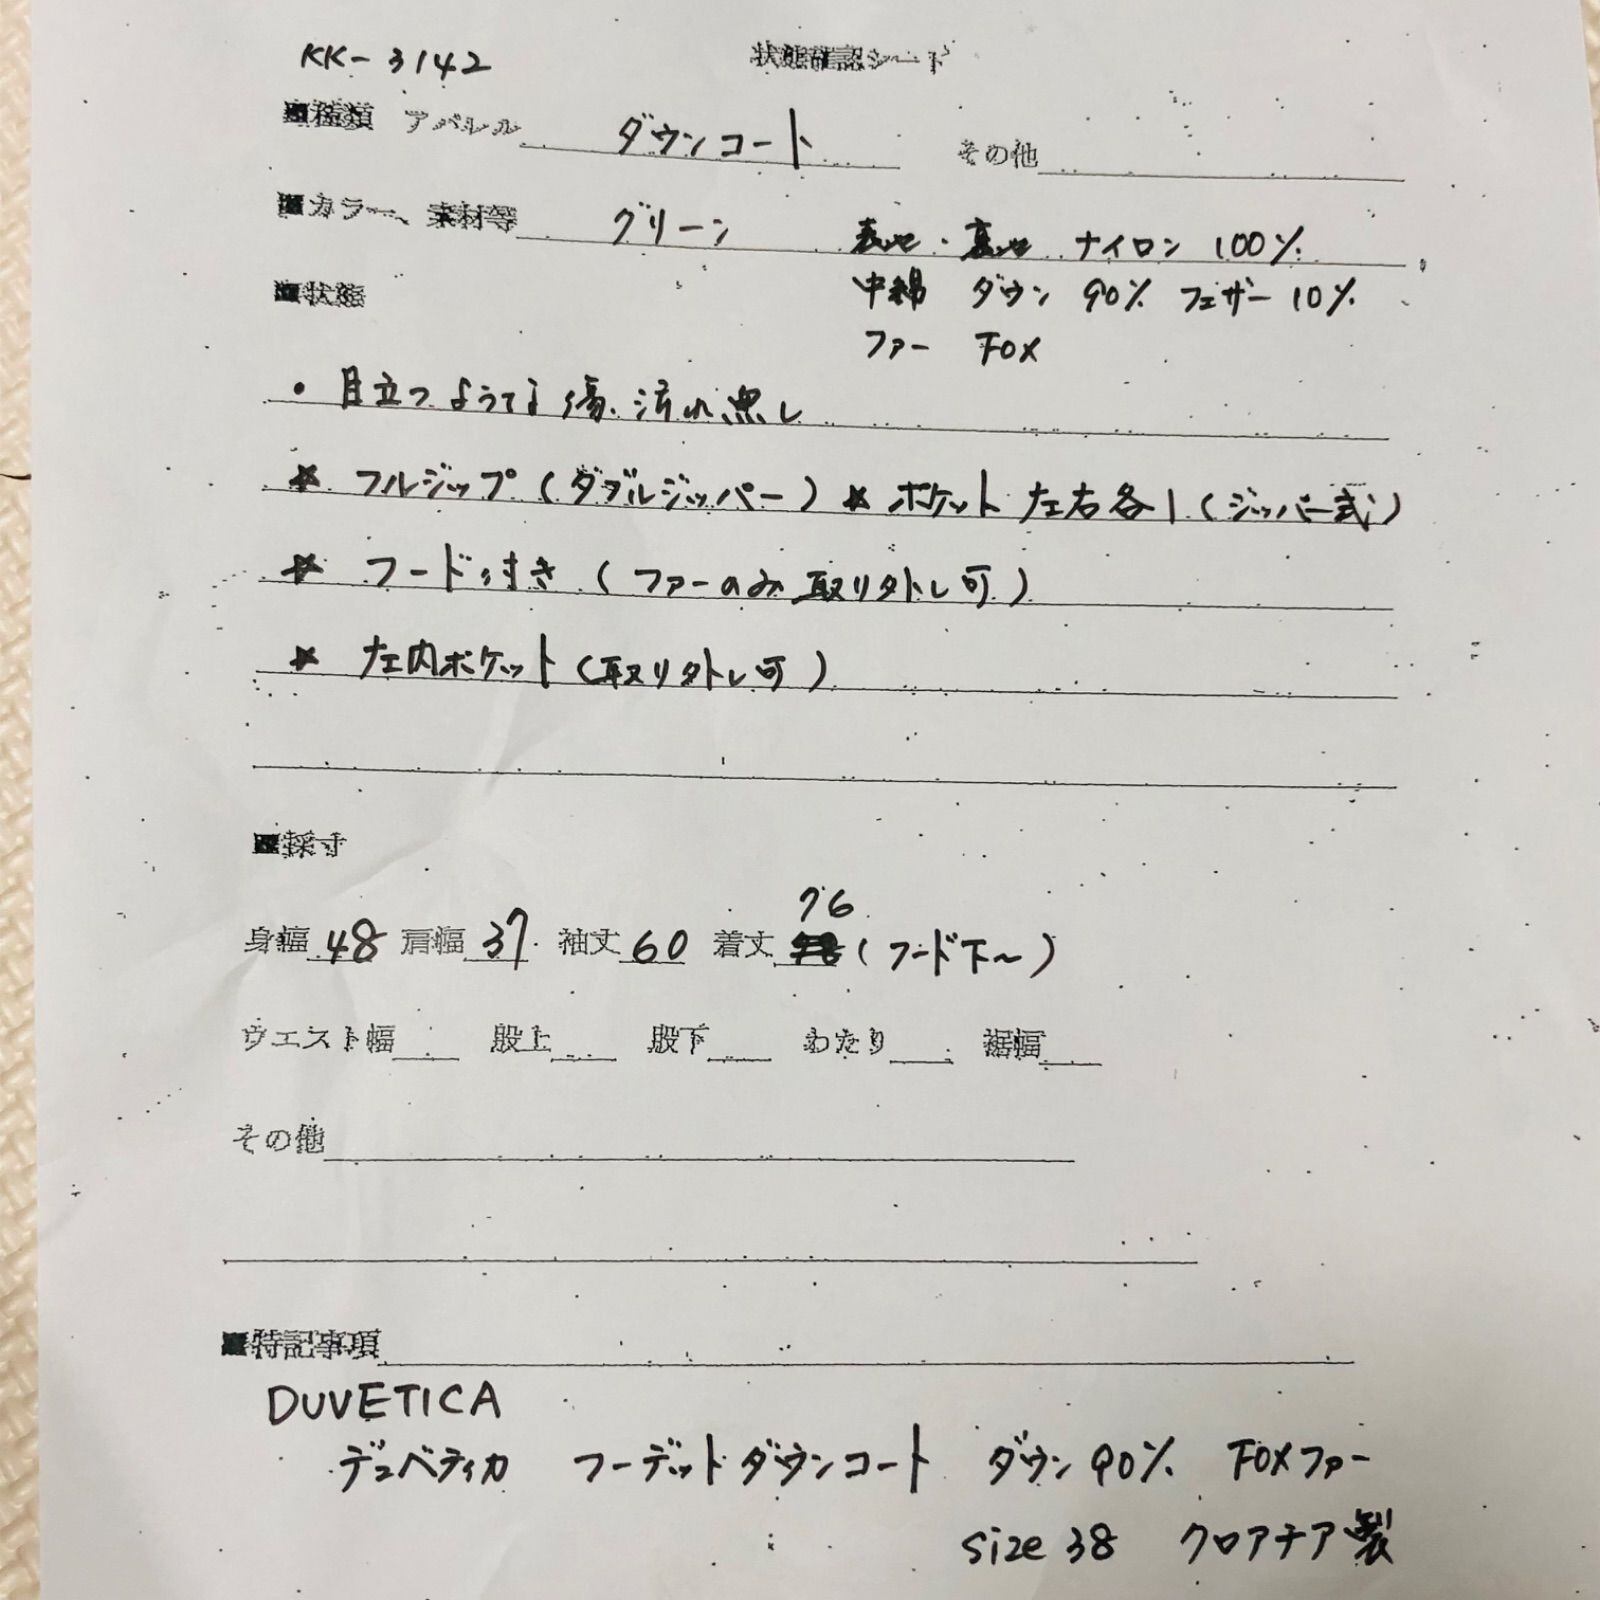 KK-3142 状態確認シート
■種類 アパレル ダウンコート その他
■カラー、素材等 グリーン 表地・裏地 ナイロン 100%
■状態 中綿 ダウン 90% フェザー 10%
ファー FOX
・目立つような傷、汚れ無し
★ フルジップ(ダブルジッパー) ★ ポケット左右各1(ジッパー式)
★ フード付き(ファーのみ取り外し可)
★ 左内ポケット(取り外し可)
■採寸
76
身幅 48 肩幅 37 袖丈 60 着丈 (フード下~)
ウエスト幅 股上 股下 わたり 裾幅
その他
■特記事項
DUVETICA
デュベティカ フーデットダウンコート ダウン90% FOXファー
size 38 クロアチア製